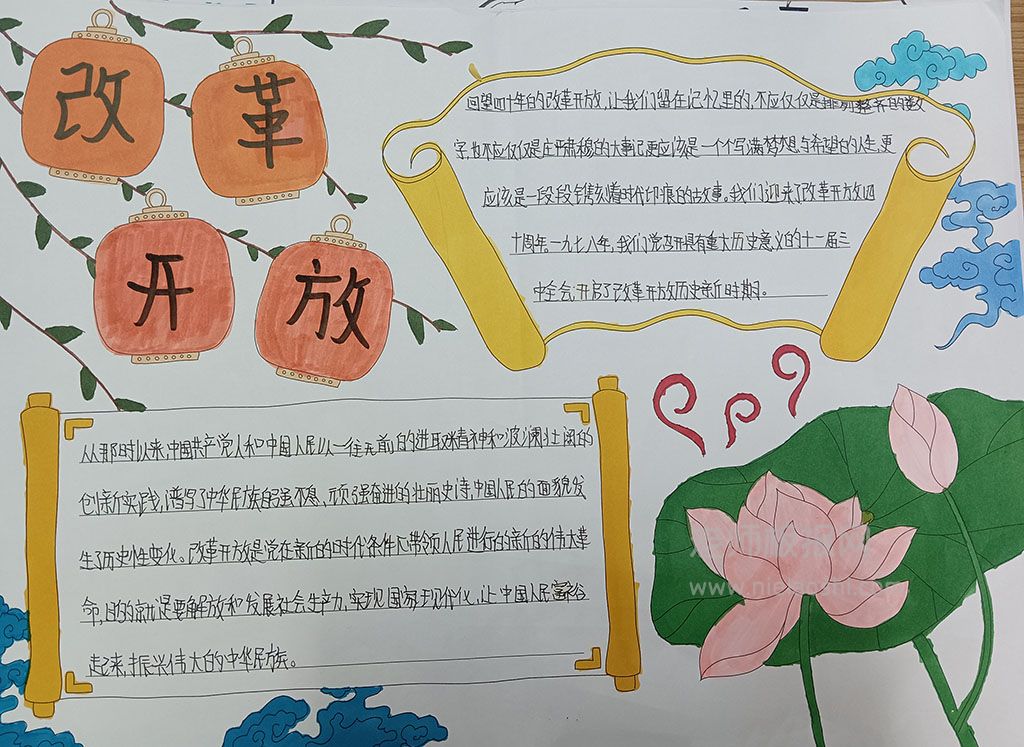 改革
开放
回望四十年的改革开放,让我们留在记忆里的,不应仅仅是排列整齐的数
字,也不应仅仅是庄严肃穆的大事记更应该是一个个写满梦想与希望的人生,更
应该是一段段镌刻着时代印痕的故事。我们迎来了改革开放四
十周年。一九七八年,我们党召开具有重大历史意义的十一届三
中全会,开启了改革开放历史新时期。
从那时以来,中国共产党人和中国人民以一往无前的进取精神和波澜壮阔的
创新实践,谱写了中华民族自强不息、顽强奋进的壮丽史诗,中国人民的面貌发
生了历史性变化。改革开放是党在新的时代条件下带领人民进行的新的伟大革
命,目的就是要解放和发展社会生产力,实现国家现代化,让中国人民富裕
起来,振兴伟大的中华民族。